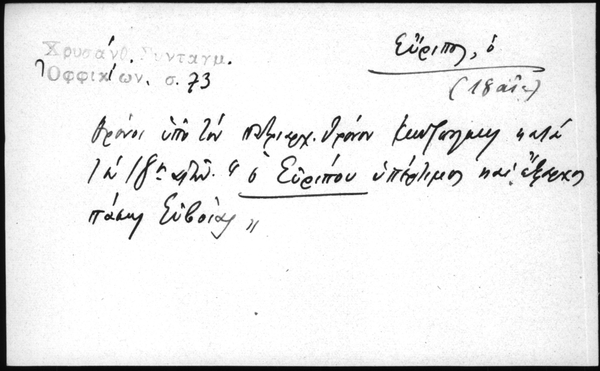 Χρυσάνθ. Συνταγμ.
Ὀφφικίων. σ. 73
Εὔριπος, ὁ
(18 αἰ.)
Θρόνοι ὑπὸ τὸν πατριαρχ. θρόνον Κωνσταντ. κατὰ
τὸν 18ον αἰῶν. "ὁ Εὐρίπου ὑπέρτιμος καὶ ἔξαρχος
πάσης Εὐβοίας"